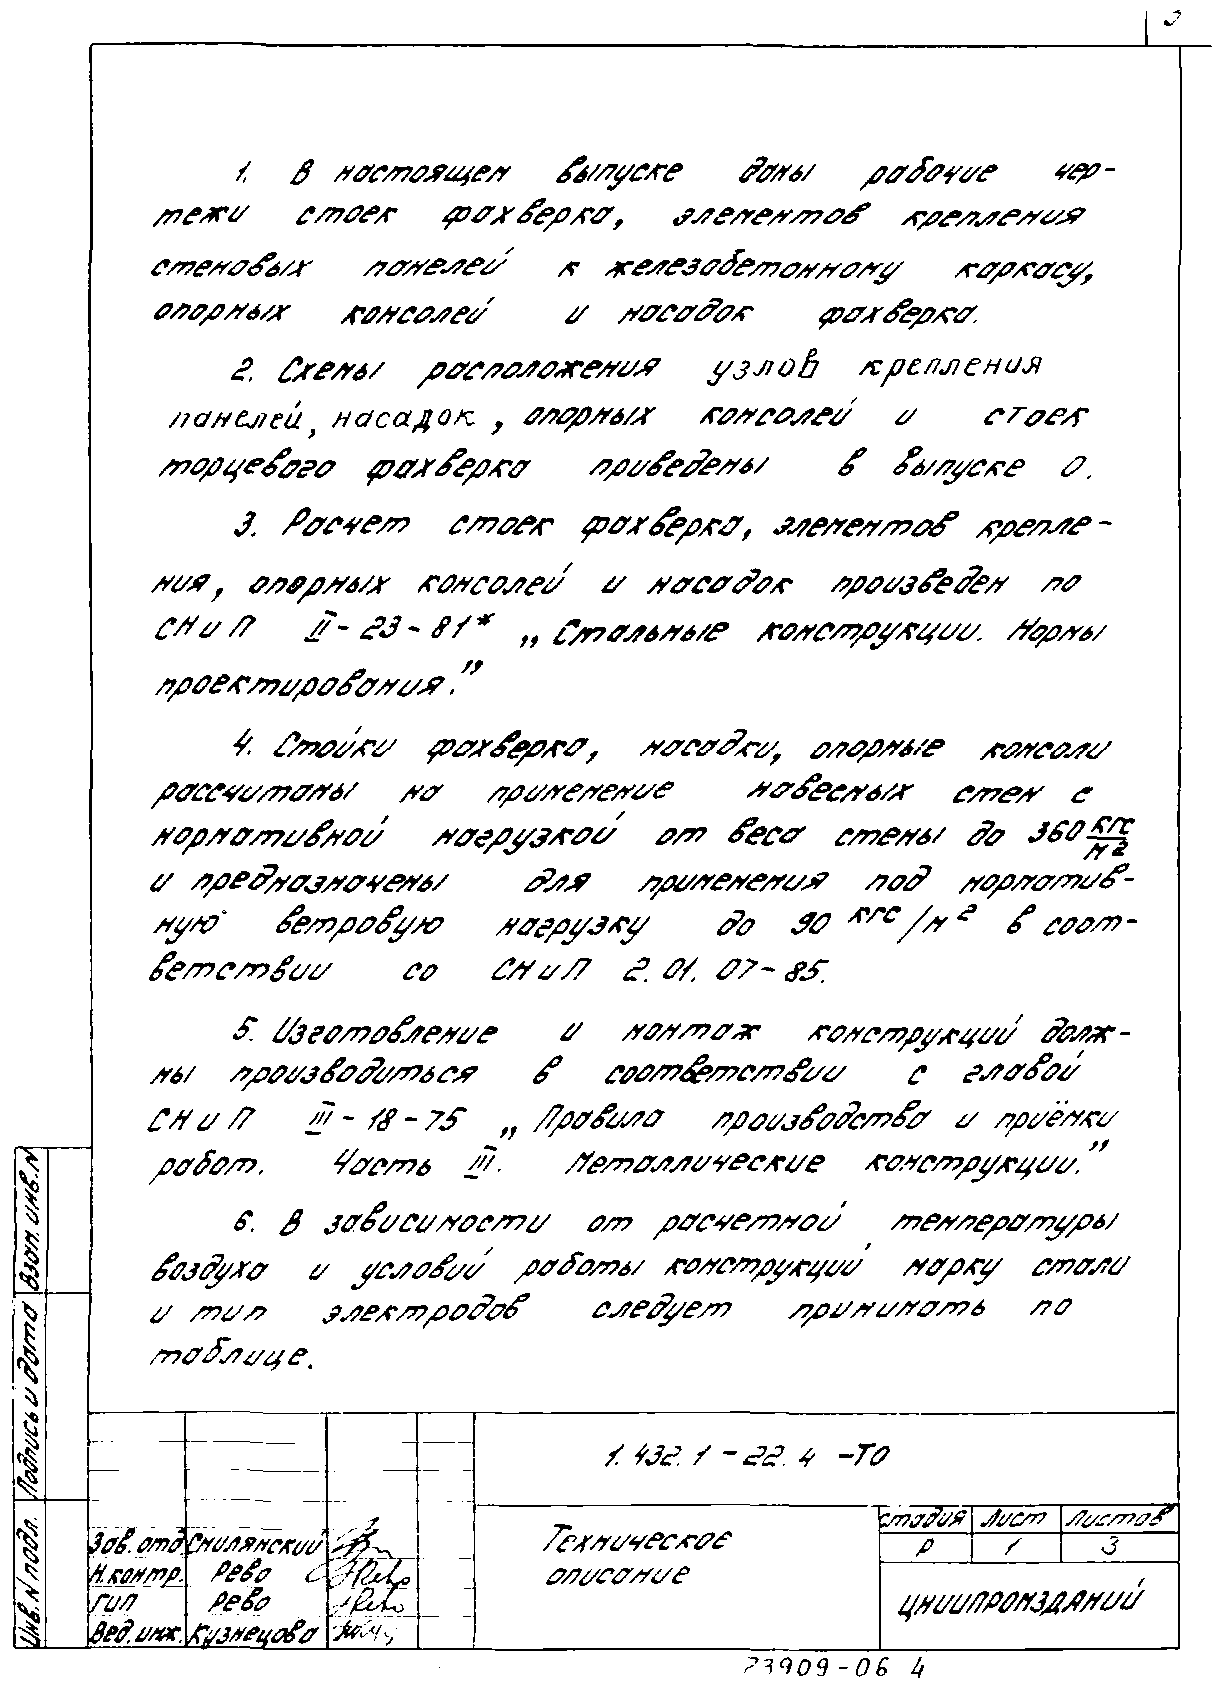 1. В настоящем выпуске даны рабочие чер-
тежи стоек фахверка, элементов крепления
стеновых панелей к железобетонному каркасу,
опорных консолей и насадок фахверка.
2. Схемы расположения узлов крепления
панелей, насадок, опорных консолей и стоек
торцевого фахверка приведены в выпуске 0.
3. Расчет стоек фахверка, элементов крепле-
ния, опорных консолей и насадок произведен по
СНиП II-23-81* „Стальные конструкции. Нормы
проектирования."
4. Стойки фахверка, насадки, опорные консоли
рассчитаны на применение навесных стен с
нормативной нагрузкой от веса стены до 360 кгс/м2
и предназначены для применения под норматив-
ную ветровую нагрузку до 90 кгс/м2 в соот-
ветствии со СНиП 2.01.07-85.
5. Изготовление и монтаж конструкций долж-
ны производиться в соответствии с главой
СНиП III-18-75 „Правила производства и приёмки
работ. Часть III. Металлические конструкции."
6. В зависимости от расчетной температуры
воздуха и условий работы конструкций марку стали
и тип электродов следует принимать по
таблице.
Взам. инв. N
Подпись и дата
Инв. N подл.
1.432.1-22.4-ТО
Зав. отд Смилянский
Н.контр. Рево
ГИП Рево
Вед. инж. Кузнецова
Техническое
описание
Стадия Лист Листов
Р 1 3
ЦНИИПРОМЗДАНИЙ
23909-06 4